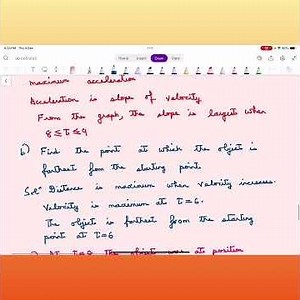 maximum acceleration
Acceleration is slope of velocity
From the graph, the slope is largest when
8 ≤ t ≤ 9
b) Find the point at which the object is
farthest from the starting point
Solⁿ Distance is maximum when velocity increases.
Velocity is maximum at t = 6.
The object is farthest from the starting
point at t = 6
the object was at position